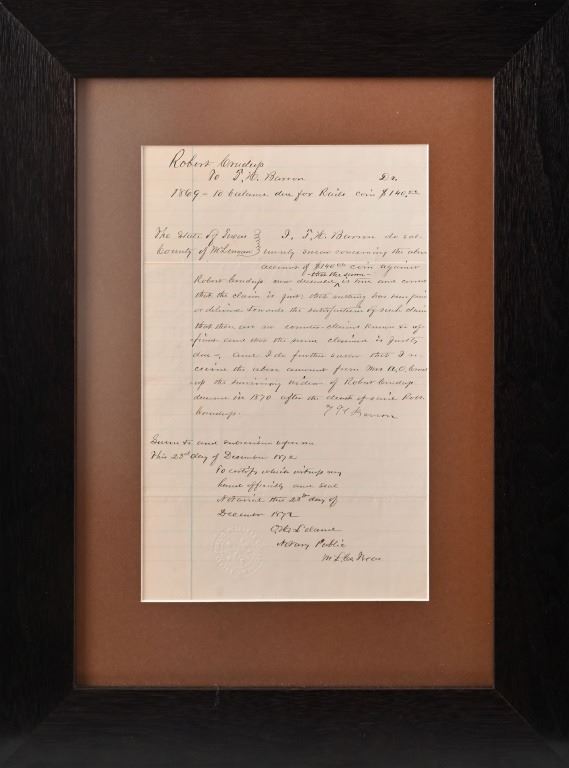 Robert Crudup
To T. H. Barron Dr.
1869 - To balance due for coin $140.00
The State of Texas
County of McLennan
I, T. H. Barron do solemnly swear concerning the above
account of $140.00 coin against
- that the same -
Robert Crudup now deceased is true and correct
that the claim is just; that nothing has been paid
or delivered towards the satisfaction of such claim
that there are no counter-claims known to af-
fiant and that the sum claimed is justly
due -, and I do further swear that I re-
ceived the above amount from Mrs Crud
up the surviving widow of Robert Crudup
deceased in 1870 after the death of said Robt.
Crudup. T H Barron
Sworn to and subscribed before me
This 23rd day of December 1872
To certify which witness my
hand officially and seal
Notarial this 23rd day of
December 1872
Notary Public
McL Co Texas